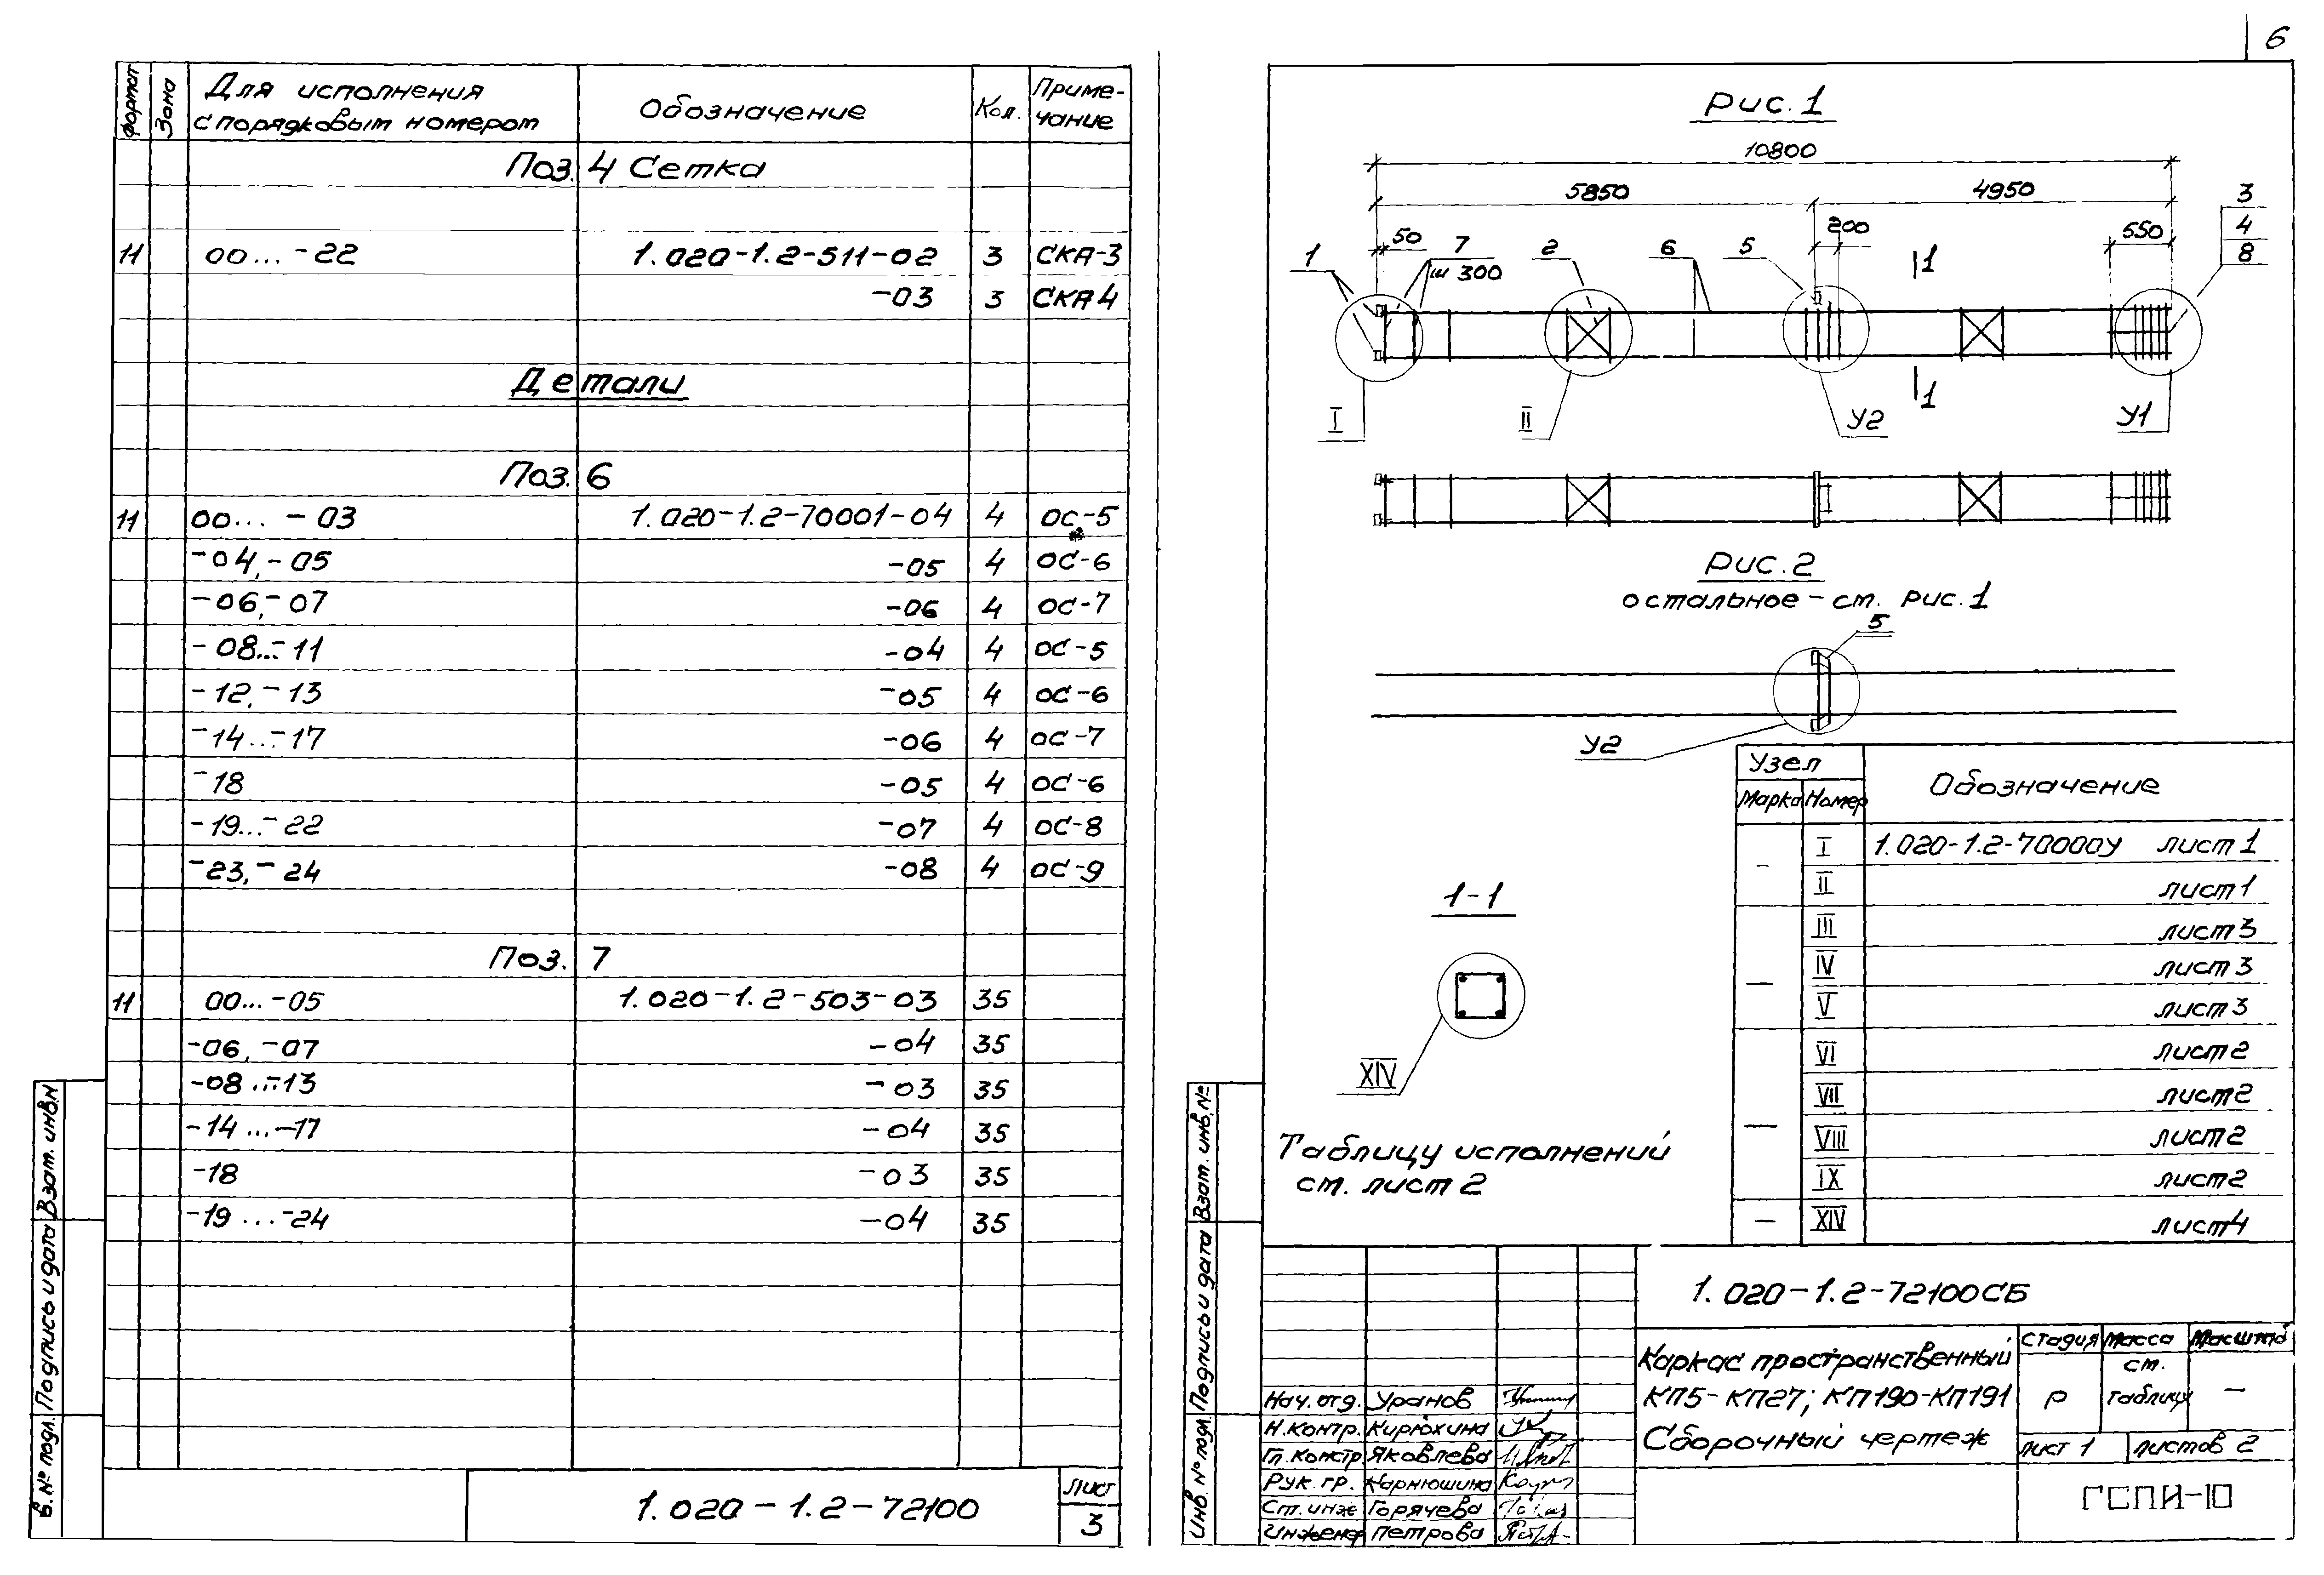 6
Формат Зона Для исполнения с порядковым номером Обозначение Кол. Примечание
Поз. 4 Сетка
11 00...-22 1.020-1.2-511-02 3 СКА-3
-03 3 СКА 4
Детали
Поз. 6
11 00...-03 1.020-1.2-70001-04 4 ОС-5
-04,-05 -05 4 ОС-6
-06,-07 -06 4 ОС-7
-08...-11 -04 4 ОС-5
-12,-13 -05 4 ОС-6
-14...-17 -06 4 ОС-7
-18 -05 4 ОС-6
-19...-22 -07 4 ОС-8
-23,-24 -08 4 ОС-9
Поз. 7
11 00...-05 1.020-1.2-503-03 35
-06,-07 -04 35
-08...-13 -03 35
-14...-17 -04 35
-18 -03 35
-19...-24 -04 35
Взам. инв.№
Подпись и дата
в.№ подл.
1.020-1.2-72100
лист
3
Рис. 1
10800
5850 4950
50 200 550
1 7 2 6 5 3
ш 300 4
8
1
1
I II У2 У1
Рис. 2
остальное - см. рис. 1
5
У2
1-1
XIV
Таблицу исполнений
см. лист 2
Узел Обозначение
Марка Номер
— I 1.020-1.2-70000У лист 1
II лист 1
III лист 3
— IV лист 3
V лист 3
VI лист 2
VII лист 2
— VIII лист 2
IX лист 2
— XIV лист 4
Взам. инв. №
Подпись и дата
Инв. № подл.
1.020-1.2-72100СБ
Каркас пространственный
КП5-КП27; КП190-КП191
Сборочный чертеж
Стадия Масса Масштаб
Р см. таблицу —
лист 1 листов 2
ГСПИ-10
Нач. отд. Уранов
Н. контр. Кирюхина
Гл. констр. Яковлева
Рук. гр. Карнюшина
Ст. инж Горячева
Инженер Петрова